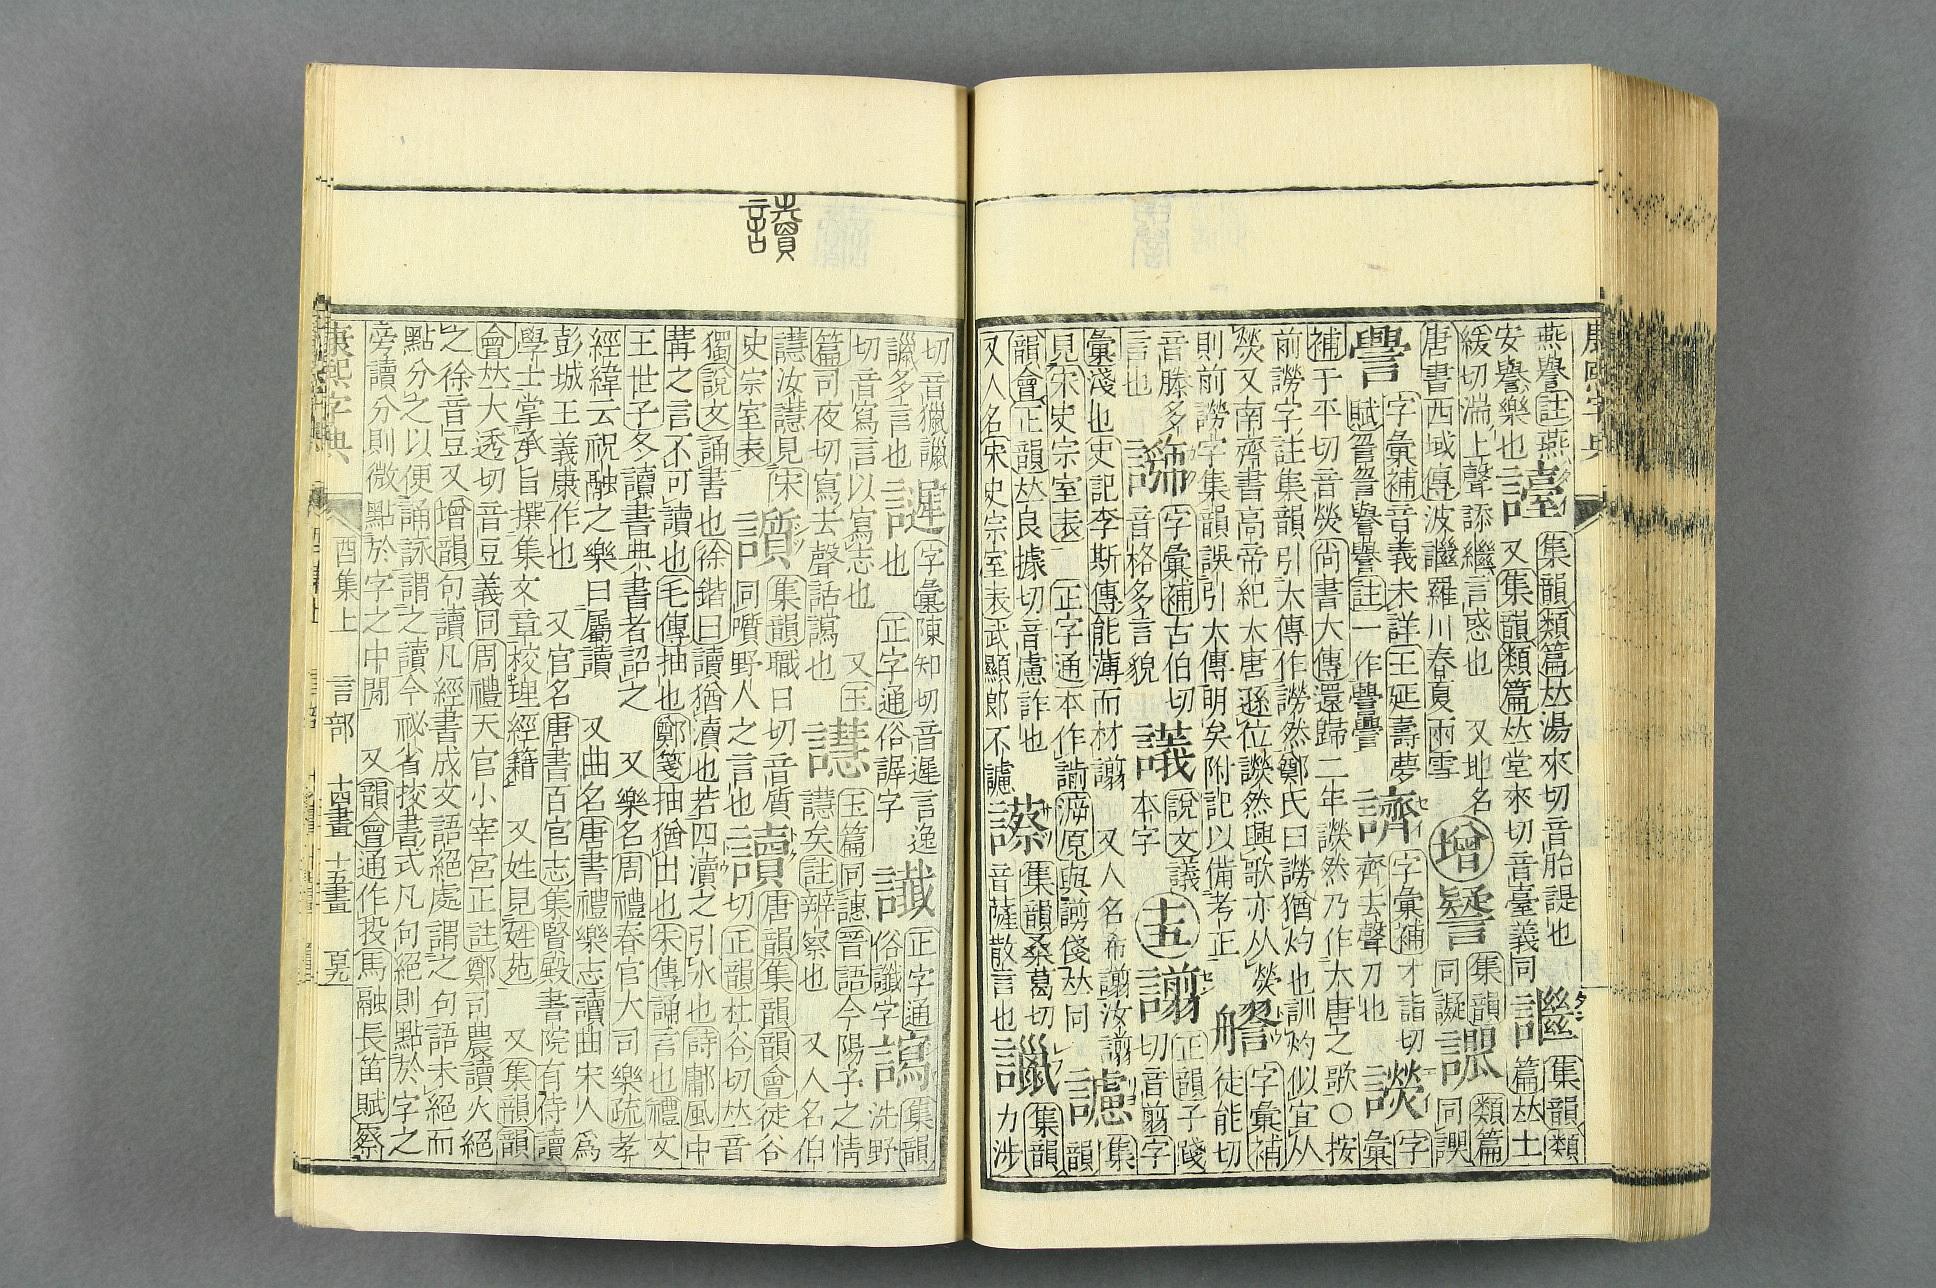 康熙字典
燕譽註燕
安譽樂也
集韻類篇𠀤湯來切音胎誕也
又集韻類篇𠀤堂來切音臺義同
集韻類
篇𠀤土
緩切湍上聲謕繼言惑也 又地名
唐書西域傳波謎羅川春夏雨雪
增
集韻
同譺
類篇
同諼
譽
字彙補音義未詳王延壽夢
賦晉晉譽譽註一作譽譽
儕
字彙補才詣切
齊去聲刀也
謍
字彙
補于平切音熒尚書大傳還歸二年謍然乃作大唐之歌〇按
前謗字註集韻引大傳作謗然鄭氏曰謗猶灼也訓灼似宜从
熒又南齊書高帝紀大唐遜位謍然興歌亦从熒
則前謗字集韻誤引大傳明矣附記以備考正
字彙補
徒能切
音滕多
言也
字彙補古伯切
音格多言貌
議
說文議
本字
十五
謭
正韻子踐
切音翦字
彙淺也史記李斯傳能薄而材謭 又人名希謭汝謭
見宋史宗室表 正字通本作諭游原與謭俴𠀤同
集
韻
韻會正韻𠀤良據切音慮詐也
又人名宋史宗室表武顯郎不譕
集韻桑葛切
音薩散言也
集韻
力涉
切音獵讝
讝多言也
謘
字彙陳知切音遲言逸
也 正字通俗謘字
讖
正字通
俗讖字
謆
集韻
洗野
切音寫言以寫志也 又玉
篇司夜切寫去聲話謆也
譿
玉篇同譓晉語今陽子之情
譿矣註辯察也 又人名伯
譿汝譿見宋
史宗室表
讀
讀
集韻職日切音質
同噴野人之言也
讀
唐韻集韻韻會徒谷
切正韻杜谷切𠀤音
獨說文誦書也徐鍇曰讀猶瀆也若四瀆之引水也詩鄘風中
冓之言不可讀也毛傳抽也鄭箋抽猶出也朱傳誦言也禮文
王世子冬讀書典書者詔之 又樂名周禮春官大司樂疏孝
經緯云祝融之樂曰屬讀 又曲名唐書禮樂志讀曲宋人爲
彭城王義康作也 又官名唐書百官志集賢殿書院有待讀
學士掌承旨撰集文章校理經籍 又姓見姓苑 又集韻韻
會𠀤大透切音豆義同周禮天官小宰宮正註鄭司農讀火絕
之徐音豆又增韻句讀凡經書成文語絕處謂之句語未絕而
點分之以便誦詠謂之讀今祕省挍書式凡句絕則點於字之
旁讀分則微點於字之中閒 又韻會通作投馬融長笛賦察
康熙字典 酉集上 言部 十四畫 十五畫 百九